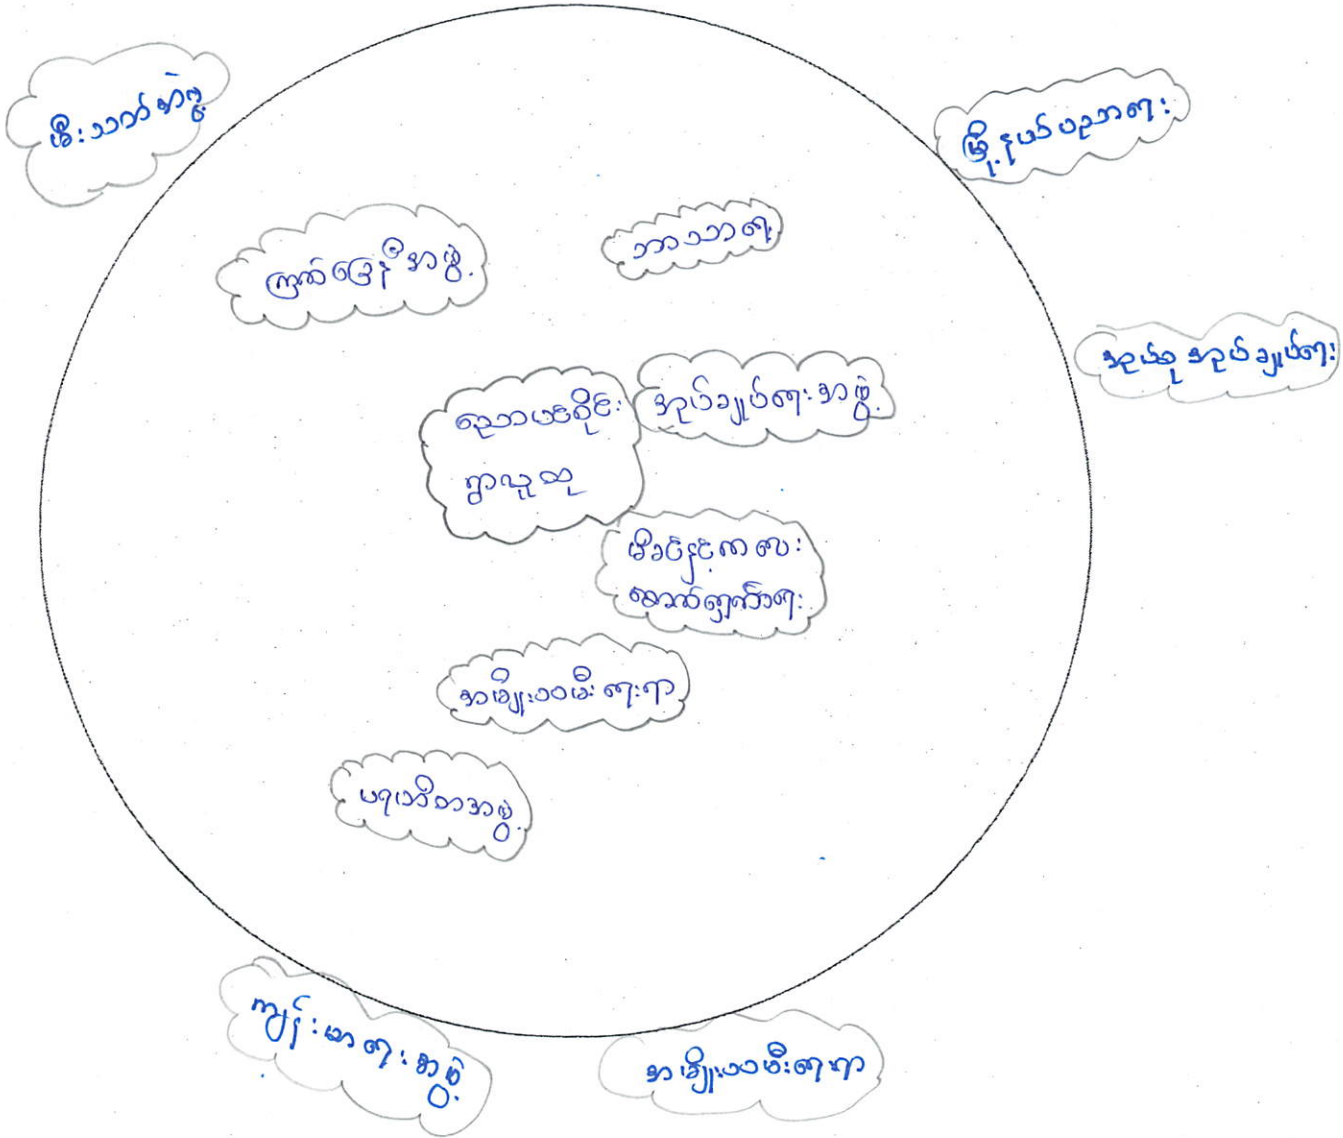 မီးသတ်အဖွဲ့
မြို့နယ်ပညာရေး
ကြက်ခြေနီအဖွဲ့
ဘာသာရေး
အုပ်စုအုပ်ချုပ်ရေး
ညောပင်ဝိုင်း
ရွာလူထု
အုပ်ချုပ်ရေးအဖွဲ့
မိခင်နှင့်ကလေး
စောက်ရှောက်ရေး
အမျိုးသမီးရေးရာ
ပရဟိတအဖွဲ့
ကျန်းမာရေးအဖွဲ့
အမျိုးသမီးရေးရာ